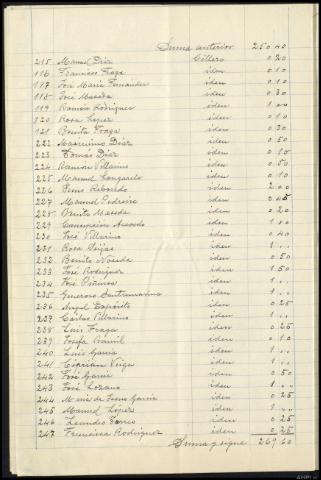 Suma anterior 250 40
215 Manuel Diz Cillero 0 20
116 Francisco Fraga iden 0 10
117 José Maria Fernandez iden 0 10
118 José Maseda iden 0 30
119 Ramón Rodriguez iden 1 00
120 Rosa Lopez iden 0 10
121 Benita Fraga iden 0 30
222 Maximino Diaz iden 0 50
223 Tomás Diaz iden 0 10
224 Ramon Villarino iden 0 50
225 Manuel iden 0 10
226 Reboredo iden 2 00
227 Manuel Pedreiro iden 0 45
228 Benita Maseda iden 0 20
229 Concepcion Acevedo iden 1 00
230 José Villarino iden 0 40
231 Rosa Seijas iden 1 ..
232 Benito iden 0 50
233 José Rodriguez iden 1 50
234 José iden 1 ..
235 Generoso Santamarina iden 1 ..
236 Angel Expósito iden 0 25
237 Carlos Villarino iden 1 ..
238 Luis Fraga iden 0 25
239 Josefa iden 0 10
240 Luis Garcia iden 1 ..
241 Ciprian iden 1 ..
242 José iden 0 50
243 José Lozano iden 1 ..
244 Garcia iden 0 25
245 Manuel López iden 1 ..
246 Leandro iden 0 25
247 Rodriguez iden 0 25
Suma y sigue 269 60